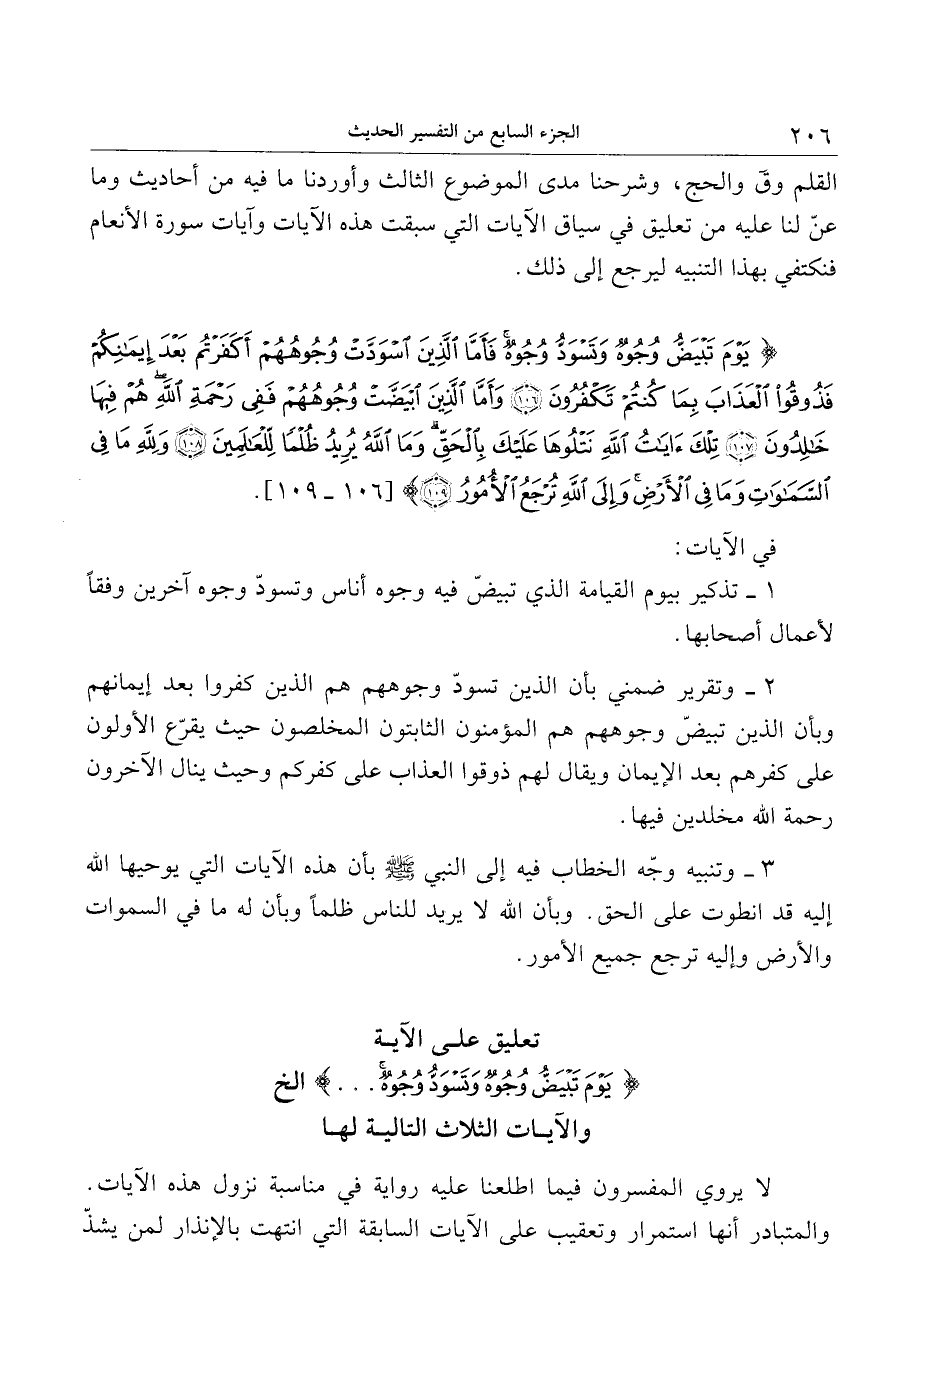 ٢٠٦ الجزء السابع من التفسير الحديث
القلم وقۤ والحج، وشرحنا مدى الموضوع الثالث وأوردنا ما فيه من أحاديث وما
عنّ لنا عليه من تعليق في سياق الآيات التي سبقت هذه الآيات وآيات سورة الأنعام
فنكتفي بهذا التنبيه ليرجع إلى ذلك.
﴿ يَوْمَ تَبْيَضُّ وُجُوهٌ وَتَسْوَدُّ وُجُوهٌۚ فَأَمَّا الَّذِينَ اسْوَدَّتْ وُجُوهُهُمْ أَكَفَرْتُم بَعْدَ إِيمَٰنِكُمْ
فَذُوقُوا۟ الْعَذَابَ بِمَا كُنتُمْ تَكْفُرُونَ ۝١٠٦ وَأَمَّا الَّذِينَ ابْيَضَّتْ وُجُوهُهُمْ فَفِى رَحْمَةِ اللَّهِۖ هُمْ فِيهَا
خَٰلِدُونَ ۝١٠٧ تِلْكَ ءَايَٰتُ اللَّهِ نَتْلُوهَا عَلَيْكَ بِالْحَقِّۗ وَمَا اللَّهُ يُرِيدُ ظُلْمًا لِّلْعَٰلَمِينَ ۝١٠٨ وَلِلَّهِ مَا فِى
السَّمَٰوَٰتِ وَمَا فِى الْأَرْضِۚ وَإِلَى اللَّهِ تُرْجَعُ الْأُمُورُ ۝١٠٩﴾ [١٠٦ ـ ١٠٩].
في الآيات:
١ ـ تذكير بيوم القيامة الذي تبيضّ فيه وجوه أناس وتسودّ وجوه آخرين وفقاً
لأعمال أصحابها.
٢ ـ وتقرير ضمني بأن الذين تسودّ وجوههم هم الذين كفروا بعد إيمانهم
وبأن الذين تبيضّ وجوههم هم المؤمنون الثابتون المخلصون حيث يقرّع الأولون
على كفرهم بعد الإيمان ويقال لهم ذوقوا العذاب على كفركم وحيث ينال الآخرون
رحمة الله مخلدين فيها.
٣ ـ وتنبيه وجّه الخطاب فيه إلى النبي ﷺ بأن هذه الآيات التي يوحيها الله
إليه قد انطوت على الحق. وبأن الله لا يريد للناس ظلماً وبأن له ما في السموات
والأرض وإليه ترجع جميع الأمور.
تعليق على الآية
﴿ يَوْمَ تَبْيَضُّ وُجُوهٌ وَتَسْوَدُّ وُجُوهٌۚ . . .﴾ الخ
والآيات الثلاث التالية لها
لا يروي المفسرون فيما اطلعنا عليه رواية في مناسبة نزول هذه الآيات.
والمتبادر أنها استمرار وتعقيب على الآيات السابقة التي انتهت بالإنذار لمن يشذّ